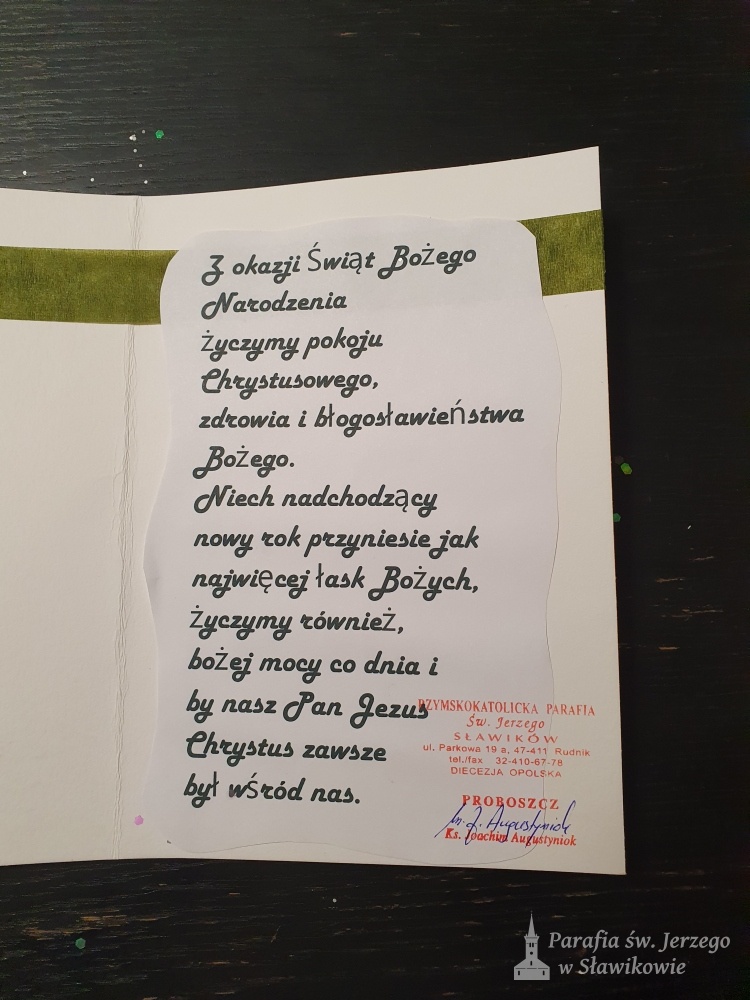 Z okazji Świąt Bożego
Narodzenia
życzymy pokoju
Chrystusowego,
zdrowia i błogosławieństwa
Bożego.
Niech nadchodzący
nowy rok przyniesie jak
najwięcej łask Bożych,
życzymy również,
bożej mocy co dnia i
by nasz Pan Jezus
Chrystus zawsze
był wśród nas.
RZYMSKOKATOLICKA PARAFIA
Św. Jerzego
SŁAWIKÓW
ul. Parkowa 19 a, 47-411 Rudnik
tel./fax 32-410-67-78
DIECEZJA OPOLSKA
PROBOSZCZ
ks. J. Augustyniok
Ks. Joachim Augustyniok
Parafia św. Jerzego
w Sławikowie